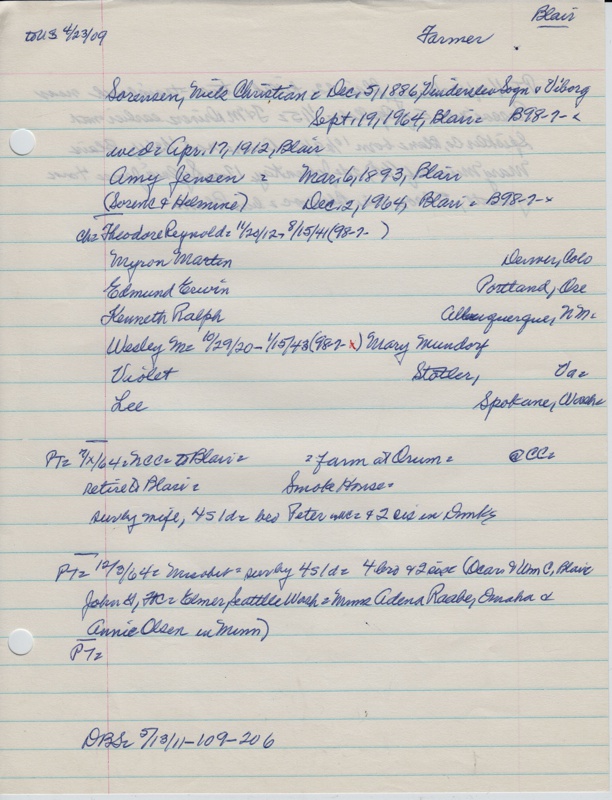 Blair
to US 4/23/09 Farmer
Sorensen, Niels Christian = Dec. 5, 1886, Sogn Viborg
Sept. 19, 1964, Blair = B98-7-
wed = Apr. 17, 1912, Blair
Amy Jensen = Mar. 6, 1893, Blair
(Sorenc & Helmine) Dec. 2, 1964, Blair = B98-7-x
ch = Theodore Reynold = 11/20/12 - 8/15/41 (98-7- )
Myron Martin Denver, Colo
Edmund Erwin Portland, Ore
Kenneth Ralph Albuquerque, N.M.
Wesley M = 10/29/20 - 1/15/43 (98-7-x) Mary Mundorf
Violet Stotler, Va =
Lee Spokane, Wash =
PT = /64 = NCC = to Blair = = farm at Orum = @ CC =
retire to Blair = Smoke House =
surv by wife, 4s 1d = bro Peter & 2 sis in Dmk
PT = 12/3/64 = = surv by 4s 1d = 4 bro & 2 sis (Oscar & Wm C, Blair
John H, = Elmer, Seattle Wash = Mmes Adena Raabe, Omaha &
Annie Olsen in Minn)
PT =
DBS = 5/13/11-109-206